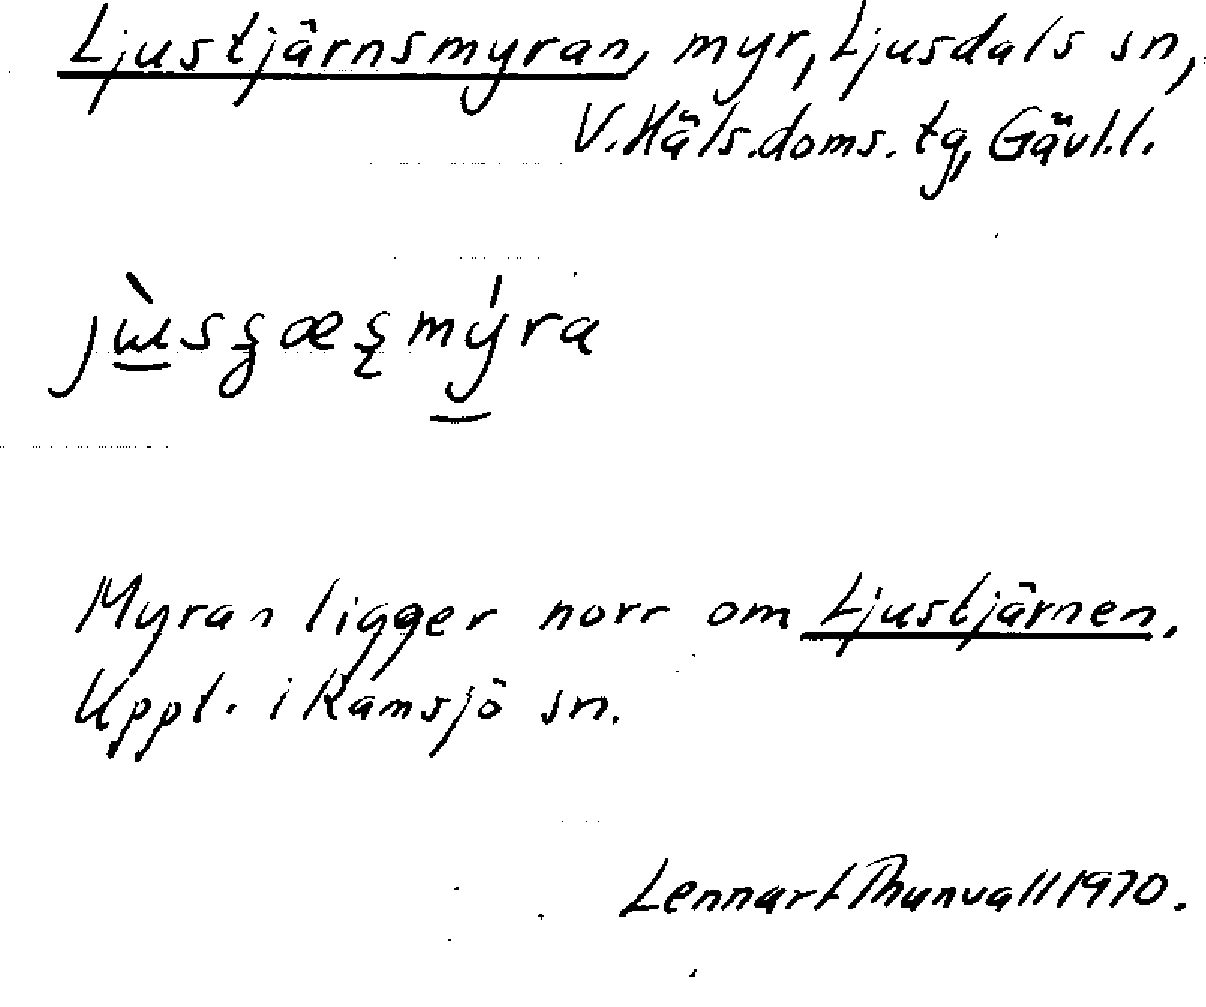 Ljustjärnsmyran, myr, Ljusdals sn,
V.Häls.doms.tg, Gävl.l.
Myran ligger norr om Ljustjärnen.
Uppt. i Ramsjö sn.
Lennart Thunvall 1970.